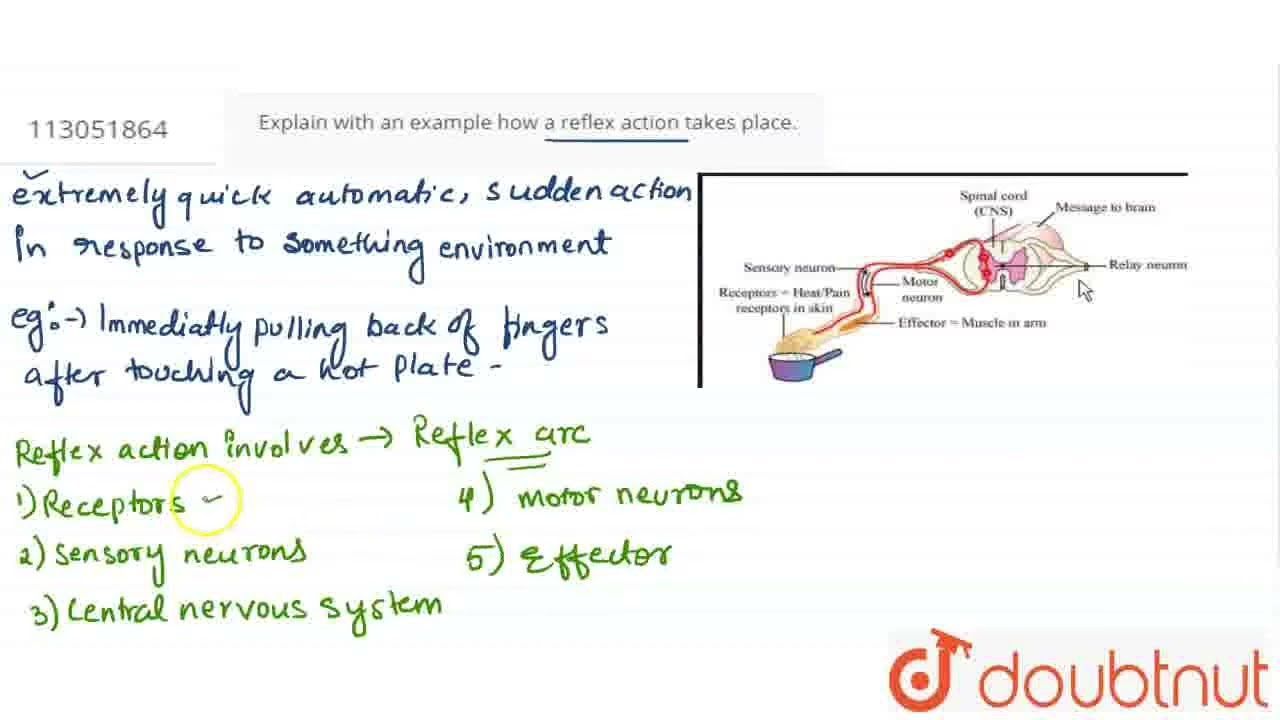 113051864
Explain with an example how a reflex action takes place.
extremely quick automatic, sudden action
In response to something environment
eg:→ Immediatly pulling back of fingers
after touching a hot plate -
Reflex action involves → Reflex arc
1) Receptors
2) Sensory neurons
3) Central nervous system
4) Motor neurons
5) Effector
Spinal cord
(CNS)
Message to brain
Sensory neuron
Relay neuron
Receptors = Heat/Pain
receptors in skin
Motor
neuron
Effector = Muscle in arm
doubtnut